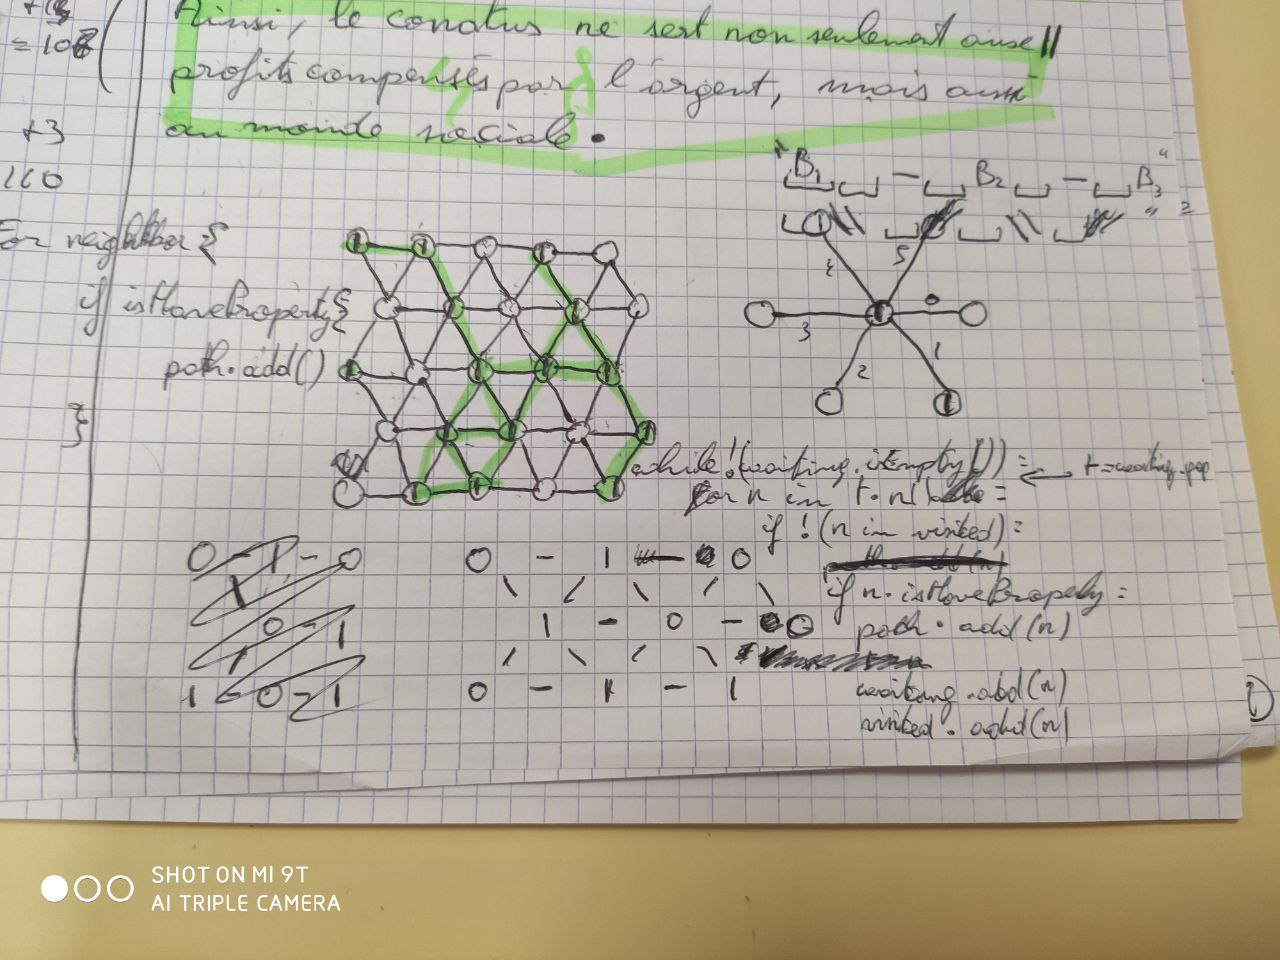 = 108
Ainsi, le conatus ne sert non seulement aux
profits compensés par l'argent, mais aussi
au monde sociale.
+3
110
"B1 _ - _ B2 _ - _ B3"
For neighbor {
if isHaveProperty {
path.add()
}
4
5
3
0
2
1
while !(waiting.isEmpty()) :
t = waiting.pop
for n in t.n() :
if !(n in visited) :
if n.isHaveProperty :
path.add(n)
waiting.add(n)
visited.add(n)
0 - 1 - 0
0 - 1
1 - 0 - 1
0 - 1 0
1 - 0 - 0
0 - 1 - 1
SHOT ON MI 9T
AI TRIPLE CAMERA